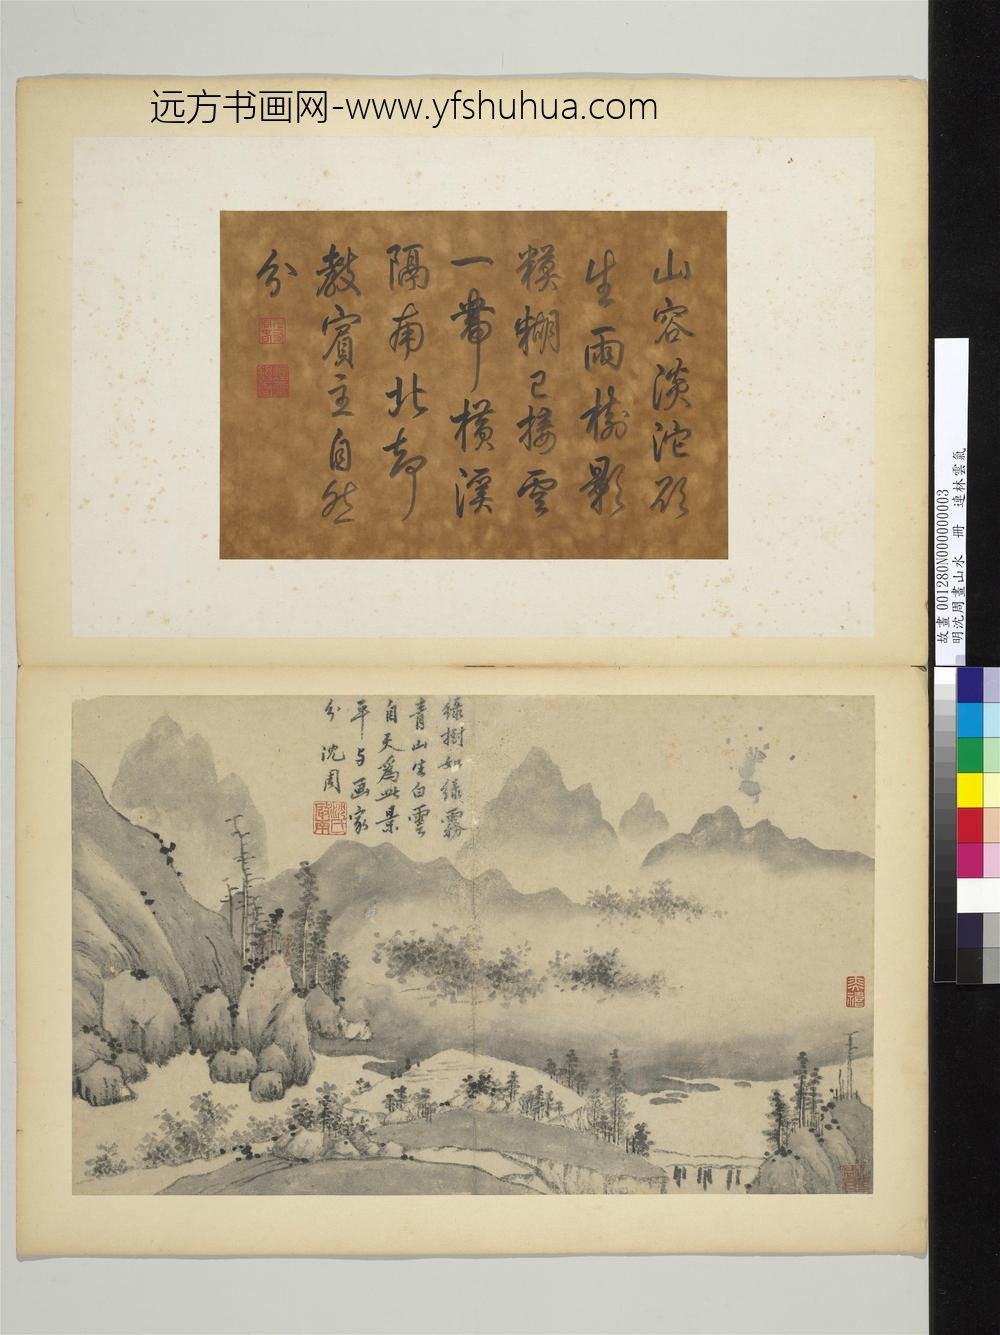 远方书画网-www.yfshuhua.com
山容淡沱欲
生雨樹影
糢糊已接雲
一帶橫溪
隔南北却
教賓主自然
分
故畫 001280N000000003
明沈周畫山水　冊　連林雲氣
綠樹如綠霧
青山生白雲
自天爲此景
平与画家
分 沈周